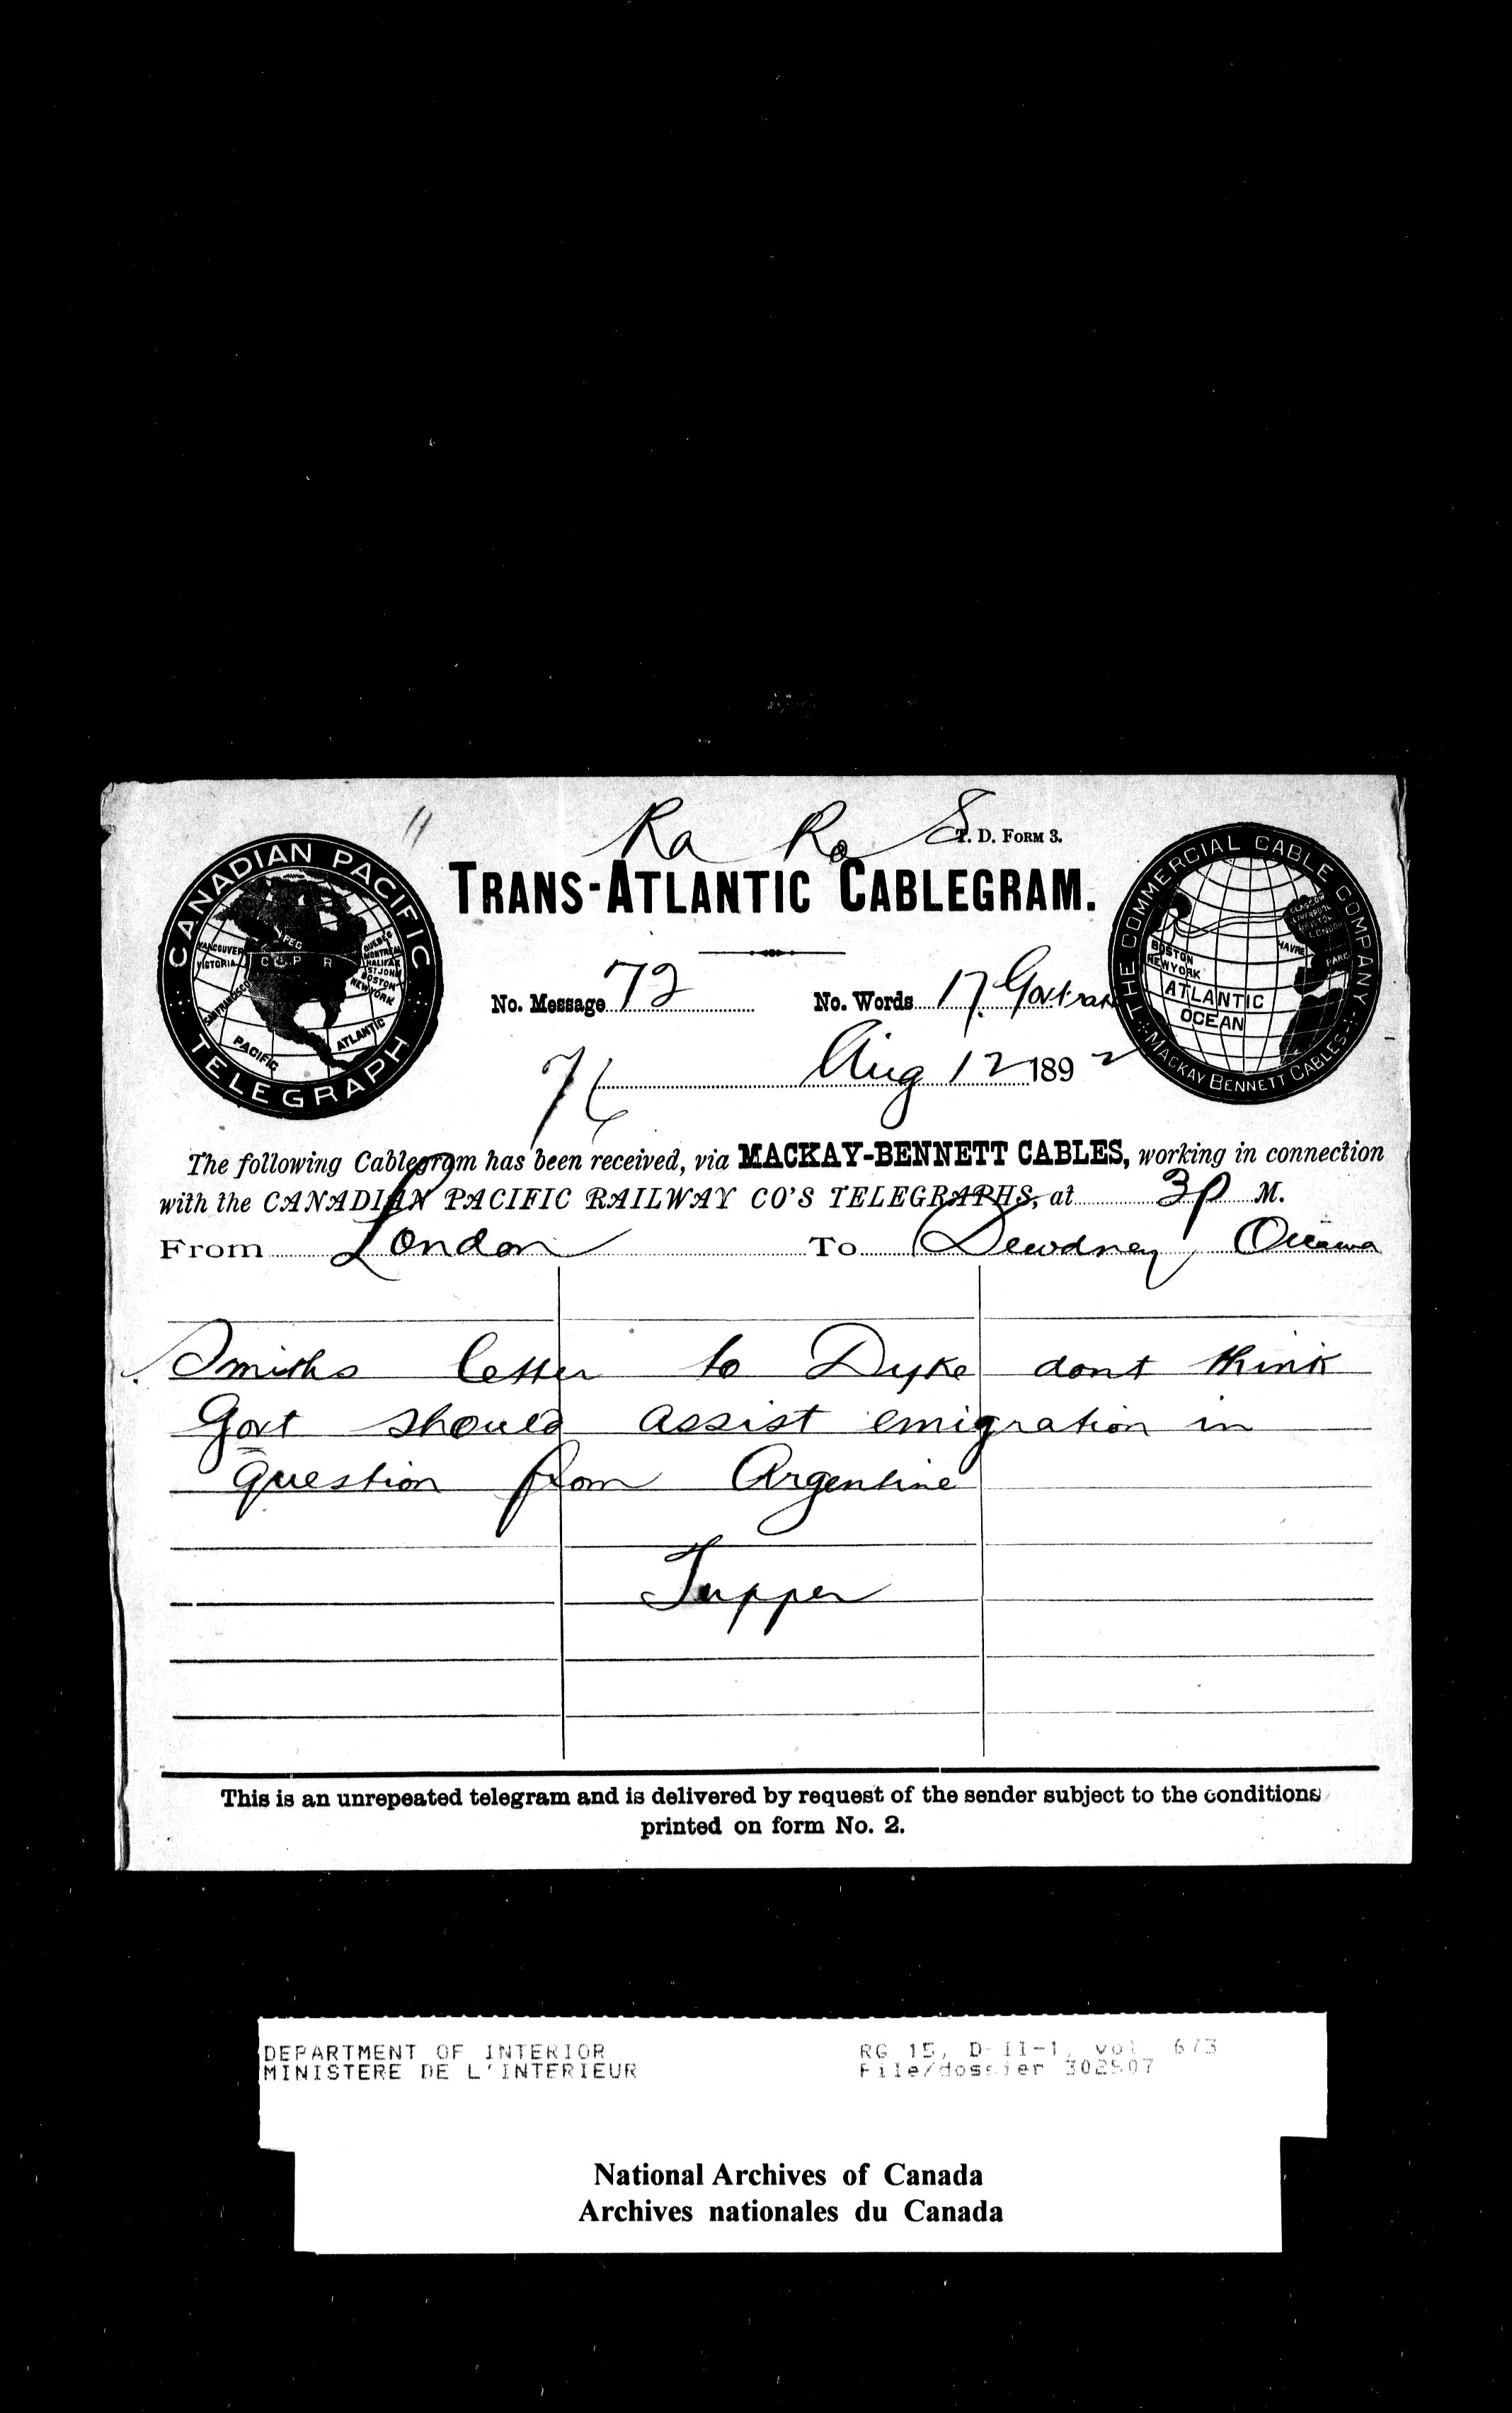 Ra Ro S
T. D. FORM 3.
CANADIAN PACIFIC TELEGRAPH
VANCOUVER
VICTORIA
SAN FRANCISCO
C. P. R
QUEBEC
MONTREAL
HALIFAX
ST JOHN
BOSTON
NEW YORK
PACIFIC
ATLANTIC
TRANS-ATLANTIC CABLEGRAM.
THE COMMERCIAL CABLE COMPANY
MACKAY BENNETT CABLES
GLASGOW
LIVERPOOL
BRISTOL
LONDON
HAVRE
BOSTON
NEW YORK
ATLANTIC
OCEAN
No. Message 72 No. Words 17 Govt rate
Aug 12 1892
The following Cablegram has been received, via MACKAY-BENNETT CABLES, working in connection
with the CANADIAN PACIFIC RAILWAY CO'S TELEGRAPHS, at 3p M.
From London To Dewdney Ottawa
Smiths letter to Dyke dont think
Govt should assist emigration in
question from Argentine
Tupper
This is an unrepeated telegram and is delivered by request of the sender subject to the conditions
printed on form No. 2.
DEPARTMENT OF INTERIOR RG 15, D-II-1, vol. 673
MINISTERE DE L'INTERIEUR File/dossier 302507
National Archives of Canada
Archives nationales du Canada